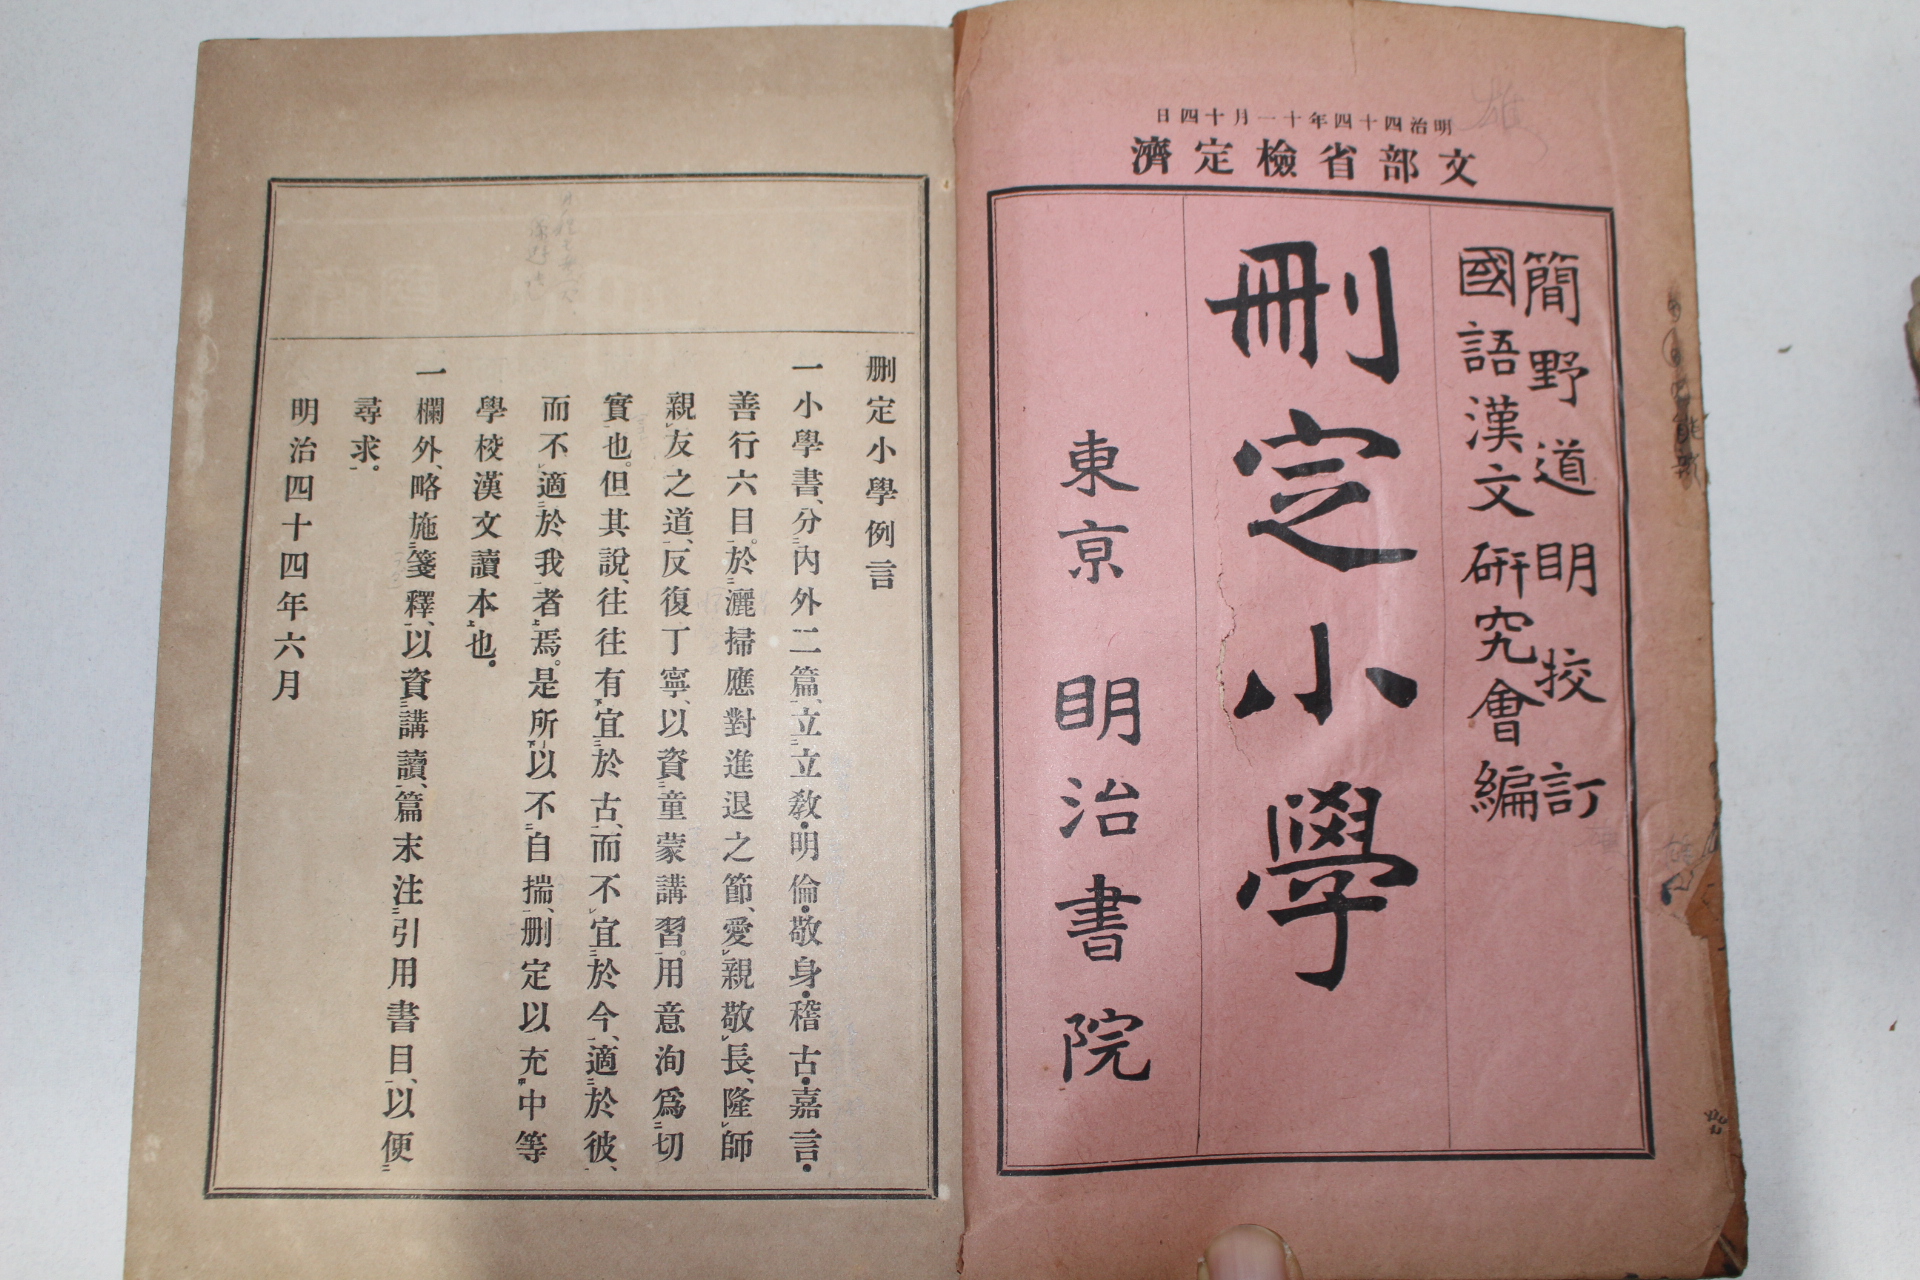 明治四十四年十一月十四日
文部省檢定濟
簡野道明校訂
國語漢文研究會編
刪定小學
東京 明治書院
刪定小學例言
一小學書、分內外二篇、立立敎・明倫・敬身・稽古・嘉言・
善行六目。於灑掃應對進退之節、愛親敬長、隆師
親友之道、反復丁寧、以資童蒙講習。用意洵爲切
實也。但其說、往往有宜於古、而不宜於今、適於彼、
而不適於我者焉。是所以不自揣、刪定以充中等
學校漢文讀本也。
一欄外、略施箋釋、以資講讀、篇末注引用書目、以便
尋求。
明治四十四年六月